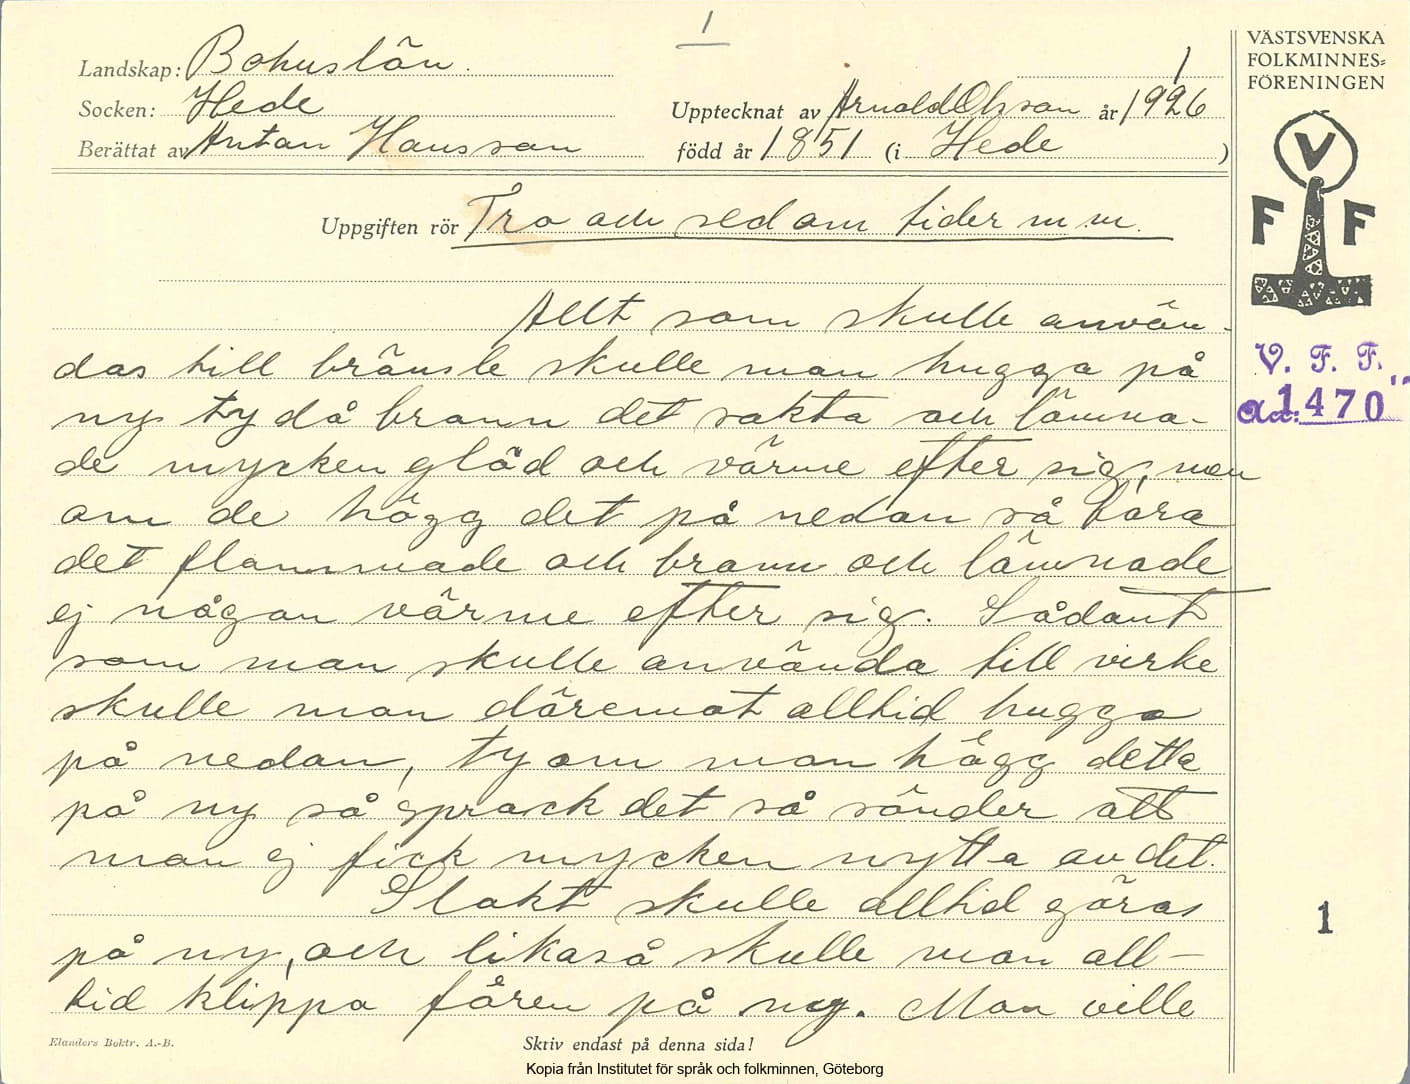 1
Landskap: Bohuslän.
1
Socken: Hede
Upptecknat av Arnold Olsson år 1926
Berättat av Anton Hansson
född år 1851 (i Hede )
Uppgiften rör Tro och sed om tider m.m.
Allt som skulle använ-
das till bränsle skulle man hugga på
ny ty då brann det sakta och lämna-
de mycken glöd och värme efter sig, men
om de högg det på nedan så bara
det flammade och brann och lämnade
ej någon värme efter sig. Sådant
som man skulle använda till virke
skulle man däremot alltid hugga
på nedan, ty om man högg detta
på ny så sprack det så sönder att
man ej fick mycken nytta av det.
Slakt skulle alltid göras
på ny, och likaså skulle man all-
tid klippa fåren på ny. Man ville
Elanders Boktr. A.-B.
Skriv endast på denna sida!
Kopia från Institutet för språk och folkminnen, Göteborg
VÄSTSVENSKA
FOLKMINNES-
FÖRENINGEN
V
F F
V. F. F.
Acc: 1470
1